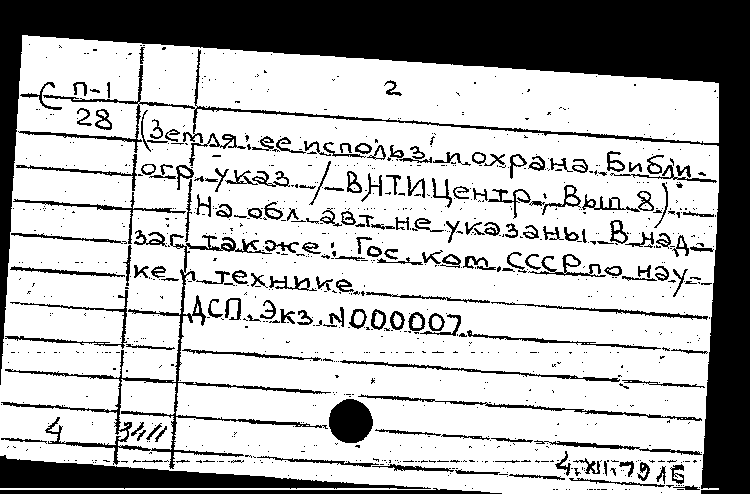 2
С П-1
28
(Земля: ее использ. и охрана. Библи-
огр. указ. / ВНТИЦентр; Вып. 8).
На обл. авт. не указаны. В над-
заг. также: Гос. ком. СССР по нау-
ке и технике.
ДСП. Экз. N000007.
4 3411
4.XII.79 ЛБ